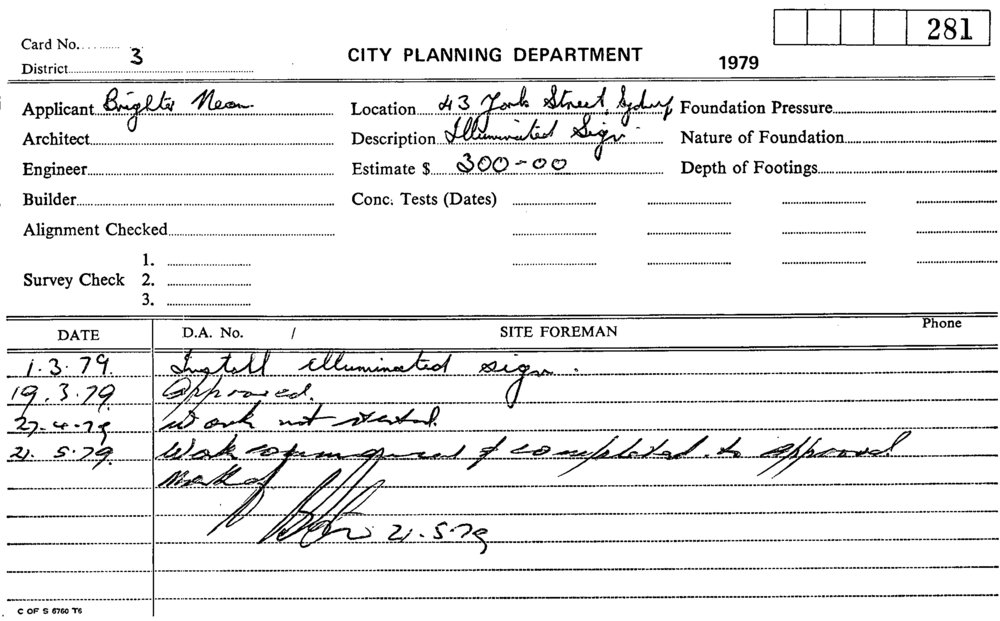 281
Card No.
District 3
CITY PLANNING DEPARTMENT 1979
Applicant Brighter Neon Location 43 York Street, Sydney Foundation Pressure
Architect Description Illuminated Sign Nature of Foundation
Engineer Estimate $ 300-00 Depth of Footings
Builder Conc. Tests (Dates)
Alignment Checked
1.
Survey Check 2.
3.
DATE D.A. No. / SITE FOREMAN Phone
1.3.79. Install illuminated sign.
19.3.79 Approved.
27.4.79 Work not started.
21.5.79. Work commenced & completed to approved
21.5.79
C OF S 6760 T6